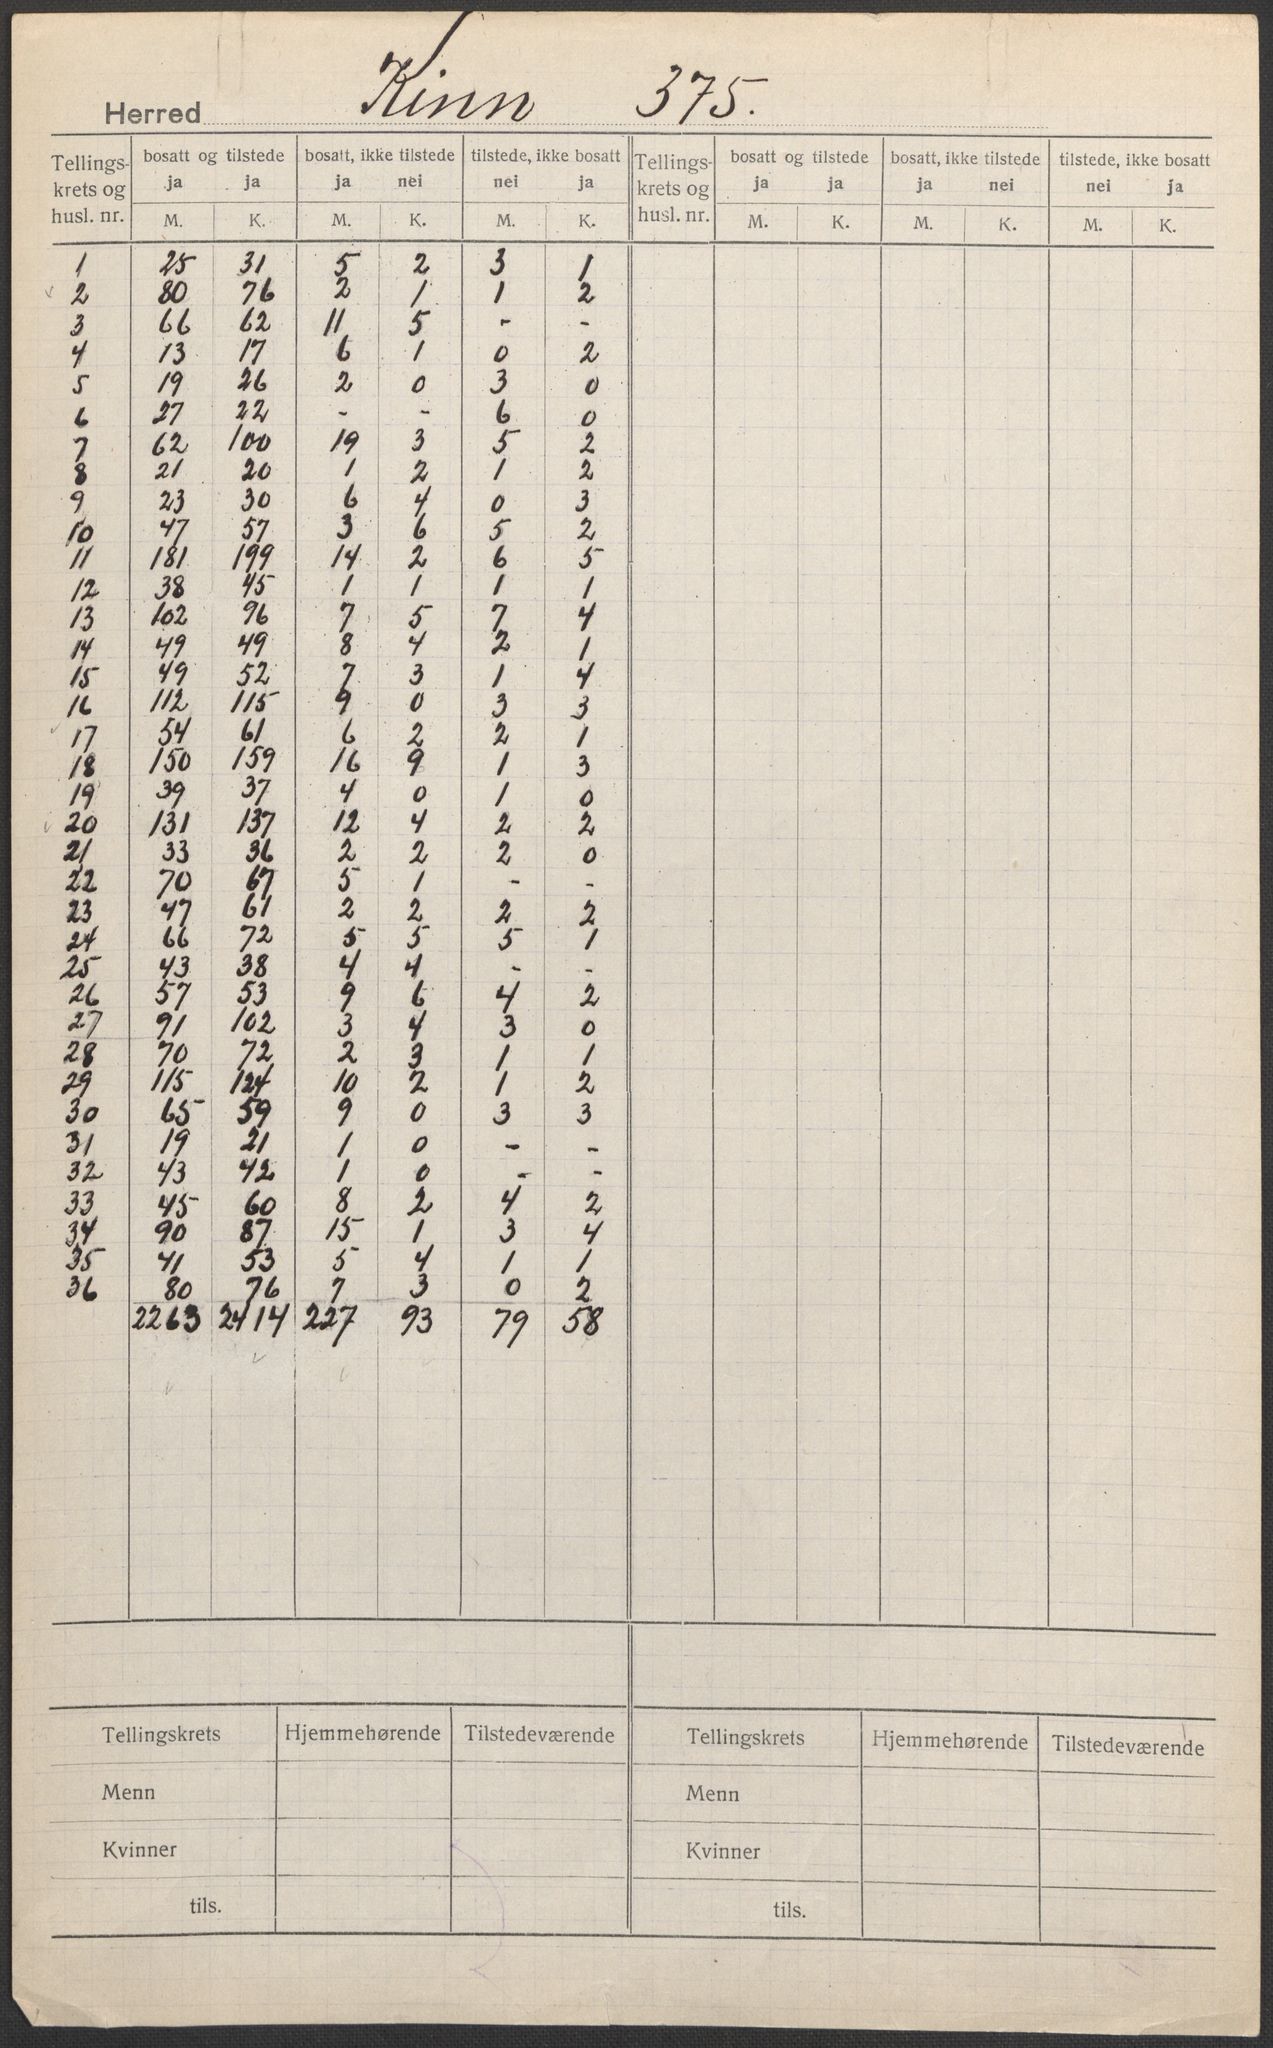 Herred Kinn 375.
Tellings- krets og husl. nr. | bosatt og tilstede | bosatt, ikke tilstede | tilstede, ikke bosatt | Tellings- krets og husl. nr. | bosatt og tilstede | bosatt, ikke tilstede | tilstede, ikke bosatt
ja ja ja nei nei ja ja ja ja nei nei ja
M. K. M. K. M. K. M. K. M. K. M. K.
1 25 31 5 2 3 1
2 80 76 2 1 1 2
3 66 62 11 5 - -
4 13 17 6 1 0 2
5 19 26 2 0 3 0
6 27 22 - - 6 0
7 62 100 19 3 5 2
8 21 20 1 2 1 2
9 23 30 6 4 0 3
10 47 57 3 6 5 2
11 181 199 14 2 6 5
12 38 45 1 1 1 1
13 102 96 7 5 7 4
14 49 49 8 4 2 1
15 49 52 7 3 1 4
16 112 115 9 0 3 3
17 54 61 6 2 2 1
18 150 159 16 9 1 3
19 39 37 4 0 1 0
20 131 137 12 4 2 2
21 33 36 2 2 2 0
22 70 67 5 1 - -
23 47 61 2 2 2 2
24 66 72 5 5 5 1
25 43 38 4 4 - -
26 57 53 9 6 4 2
27 91 102 3 4 3 0
28 70 72 2 3 1 1
29 115 124 10 2 1 2
30 65 59 9 0 3 3
31 19 21 1 0 - -
32 43 42 1 0 - -
33 45 60 8 2 4 2
34 90 87 15 1 3 4
35 41 53 5 4 1 1
36 80 76 7 3 0 2
2263 2414 227 93 79 58
Tellingskrets Hjemmehørende Tilstedeværende Tellingskrets Hjemmehørende Tilstedeværende
Menn Menn
Kvinner Kvinner
tils. tils.